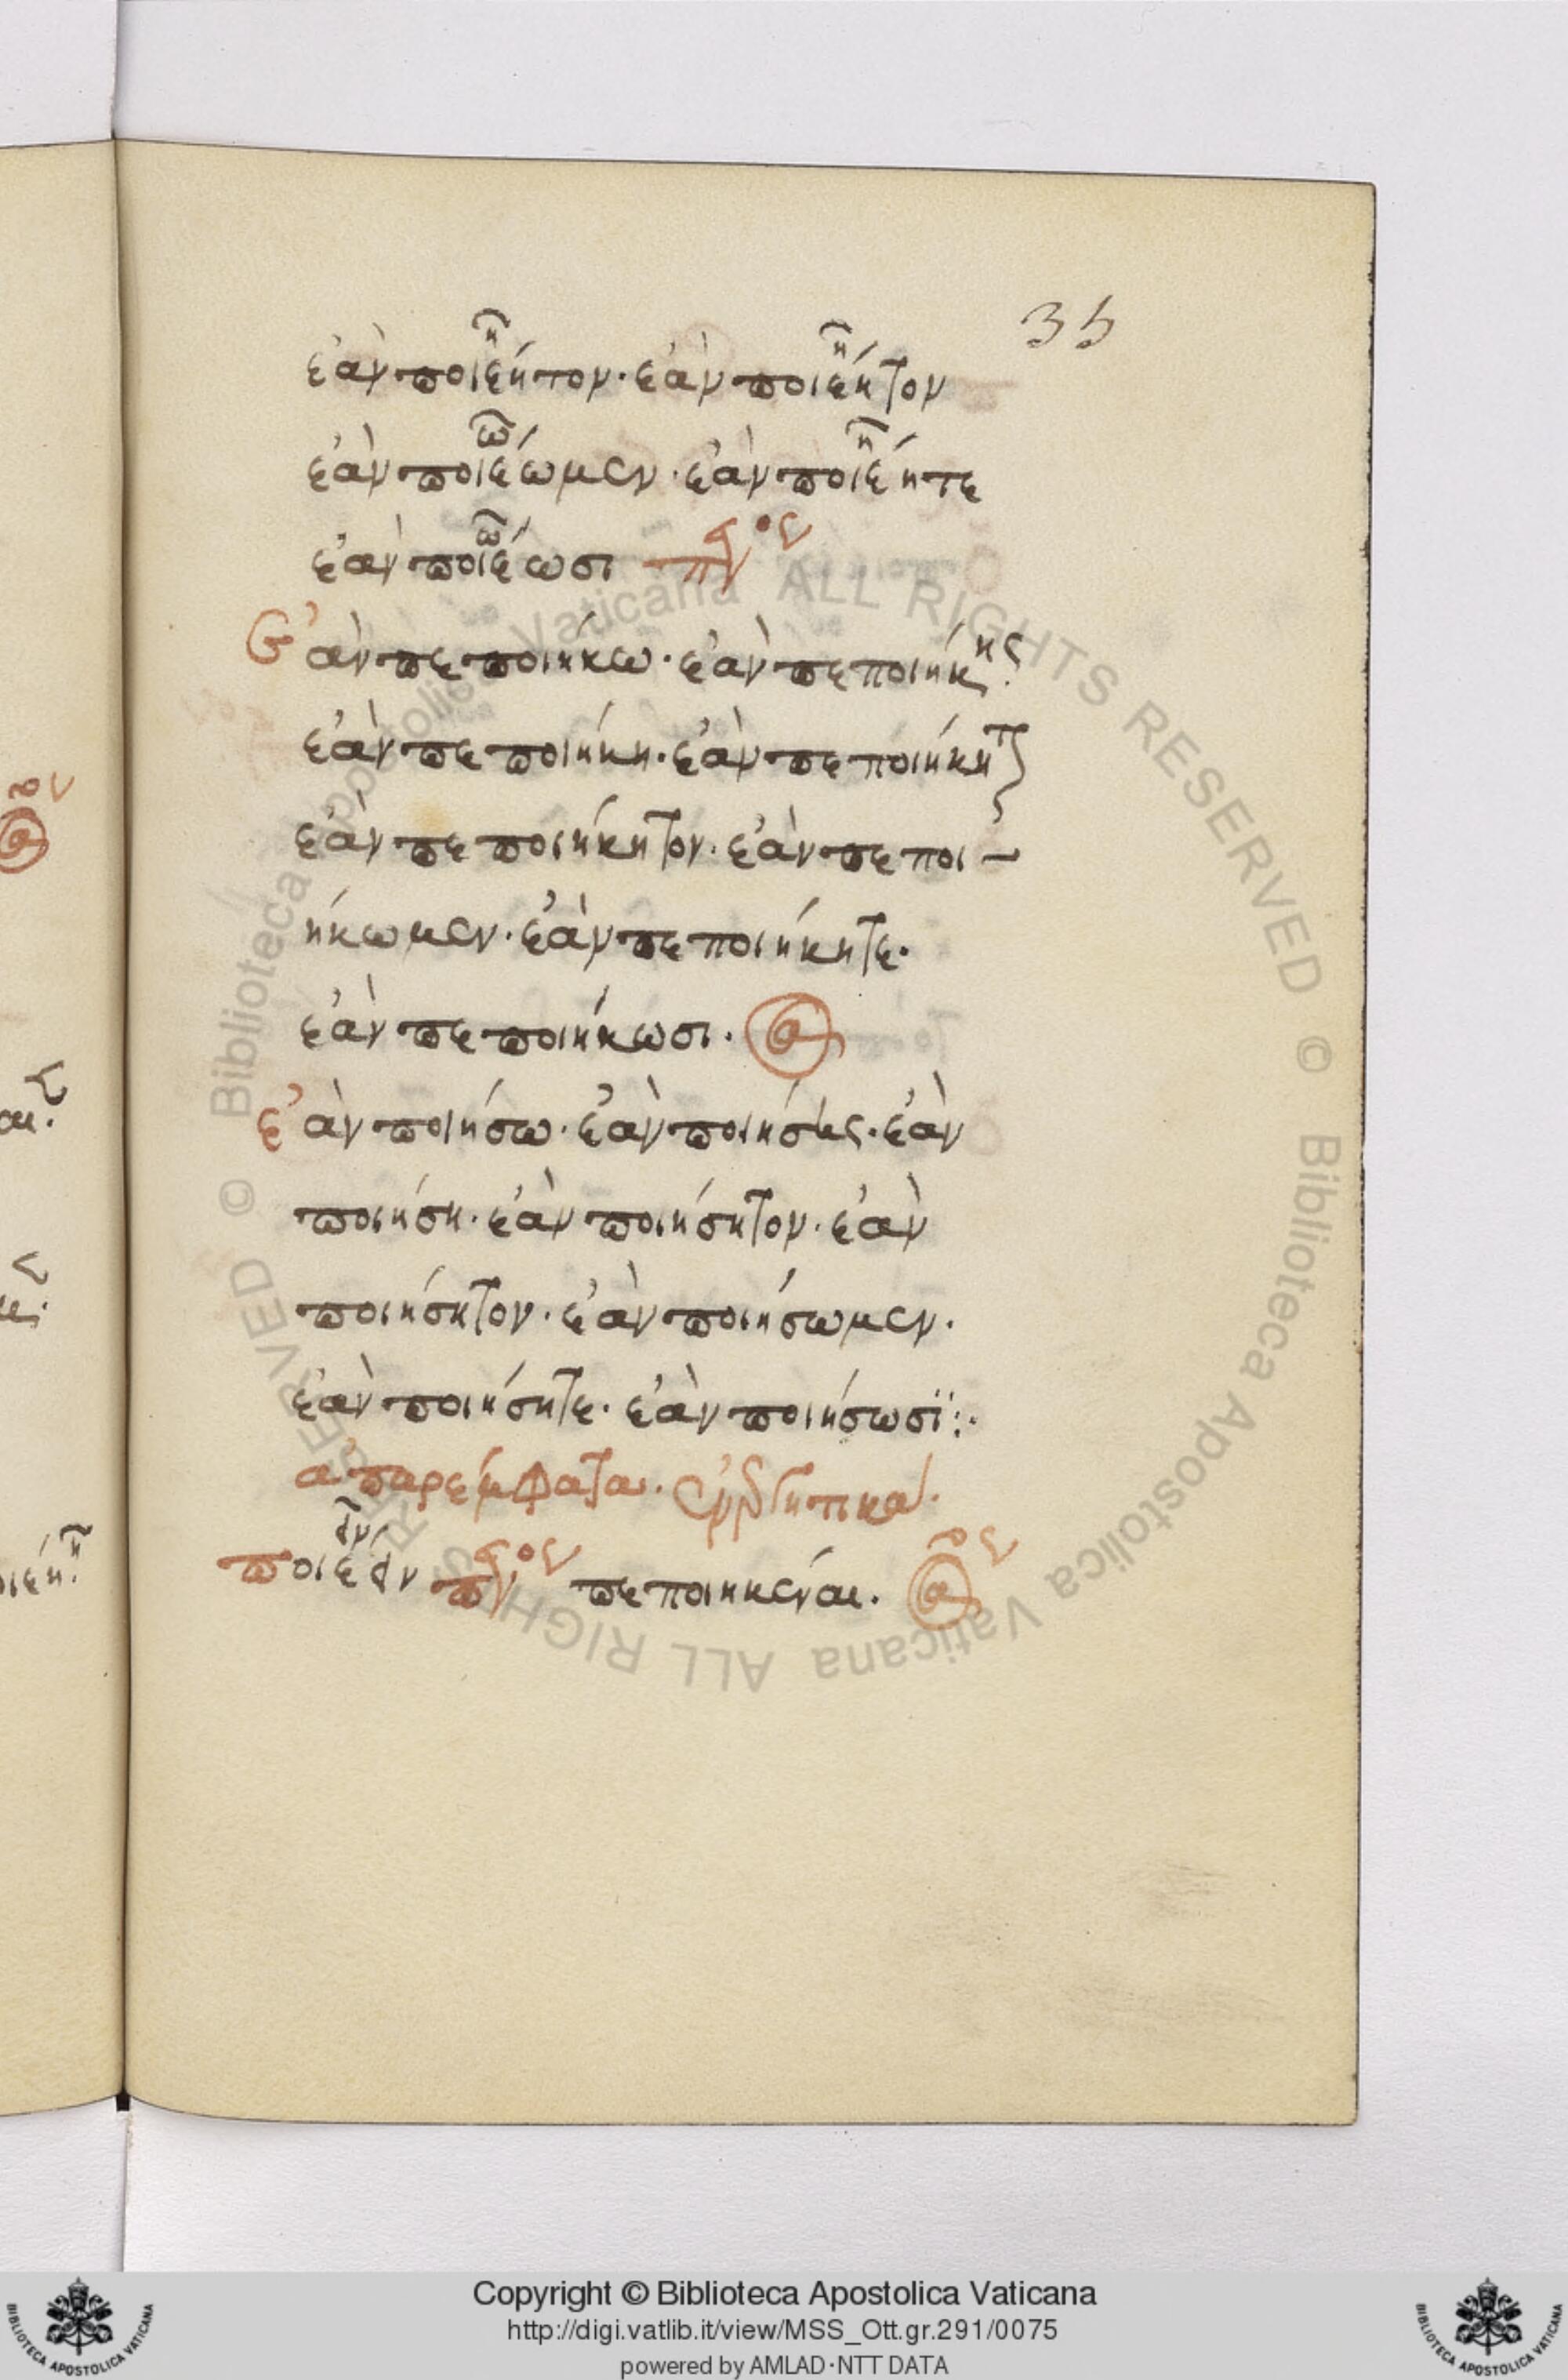 35
ἐὰν ποιέητον· ἐὰν ποιέητον
ἐὰν ποιέωμεν· ἐὰν ποιέητε
ἐὰν ποιέωσι
Ἐὰν πεποιήκω· ἐὰν πεποιήκης·
ἐὰν πεποιήκη· ἐὰν πεποιήκητον
ἐὰν πεποιήκητον· ἐὰν πεποι-
ήκωμεν· ἐὰν πεποιήκητε·
ἐὰν πεποιήκωσι·
ἐὰν ποιήσω· ἐὰν ποιήσης· ἐὰν
ποιήση· ἐὰν ποιήσητον· ἐὰν
ποιήσητον· ἐὰν ποιήσωμεν·
ἐὰν ποιήσητε· ἐὰν ποιήσωσϊ:·
ἀπαρέμφατα· ἐνεργητικά·
ποιέειν πεποιηκέναι·
Biblioteca Apostolica Vaticana ALL RIGHTS RESERVED ©
Biblioteca Apostolica Vaticana ALL RIGHTS RESERVED ©
Copyright © Biblioteca Apostolica Vaticana
http://digi.vatlib.it/view/MSS_Ott.gr.291/0075
powered by AMLAD·NTT DATA
BIBLIOTECA APOSTOLICA VATICANA
BIBLIOTECA APOSTOLICA VATICANA